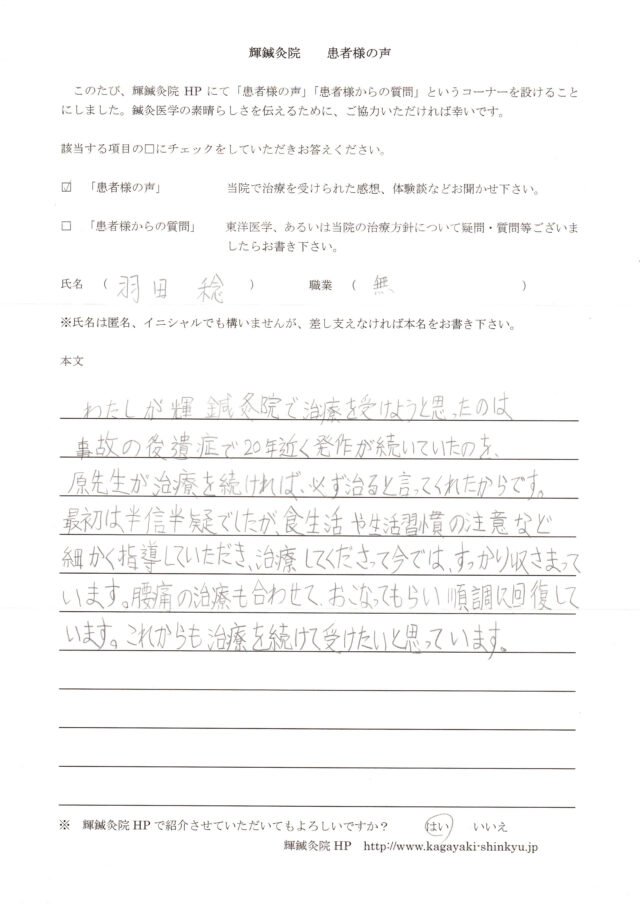 輝鍼灸院　　患者様の声
このたび、輝鍼灸院 HP にて「患者様の声」「患者様からの質問」というコーナーを設けること
にしました。鍼灸医学の素晴らしさを伝えるために、ご協力いただければ幸いです。
該当する項目の□にチェックをしていただきお答えください。
☑　「患者様の声」　　　　当院で治療を受けられた感想、体験談などお聞かせ下さい。
□　「患者様からの質問」　　東洋医学、あるいは当院の治療方針について疑問・質問等ございま
したらお書き下さい。
氏名　（　羽田　稔　）　　　職業　（　無　）
※氏名は匿名、イニシャルでも構いませんが、差し支えなければ本名をお書き下さい。
本文
わたしが輝鍼灸院で治療を受けようと思ったのは
事故の後遺症で20年近く発作が続いていたのを、
原先生が治療を続ければ、必ず治ると言ってくれたからです。
最初は半信半疑でしたが、食生活や生活習慣の注意など
細かく指導していただき、治療してくださって今では、すっかり収さまって
います。腰痛の治療も合わせて、おこなってもらい順調に回復して
います。これからも治療を続けて受けたいと思っています。
※　輝鍼灸院 HP で紹介させていただいてもよろしいですか？　　はい　いいえ
輝鍼灸院 HP　http://www.kagayaki-shinkyu.jp